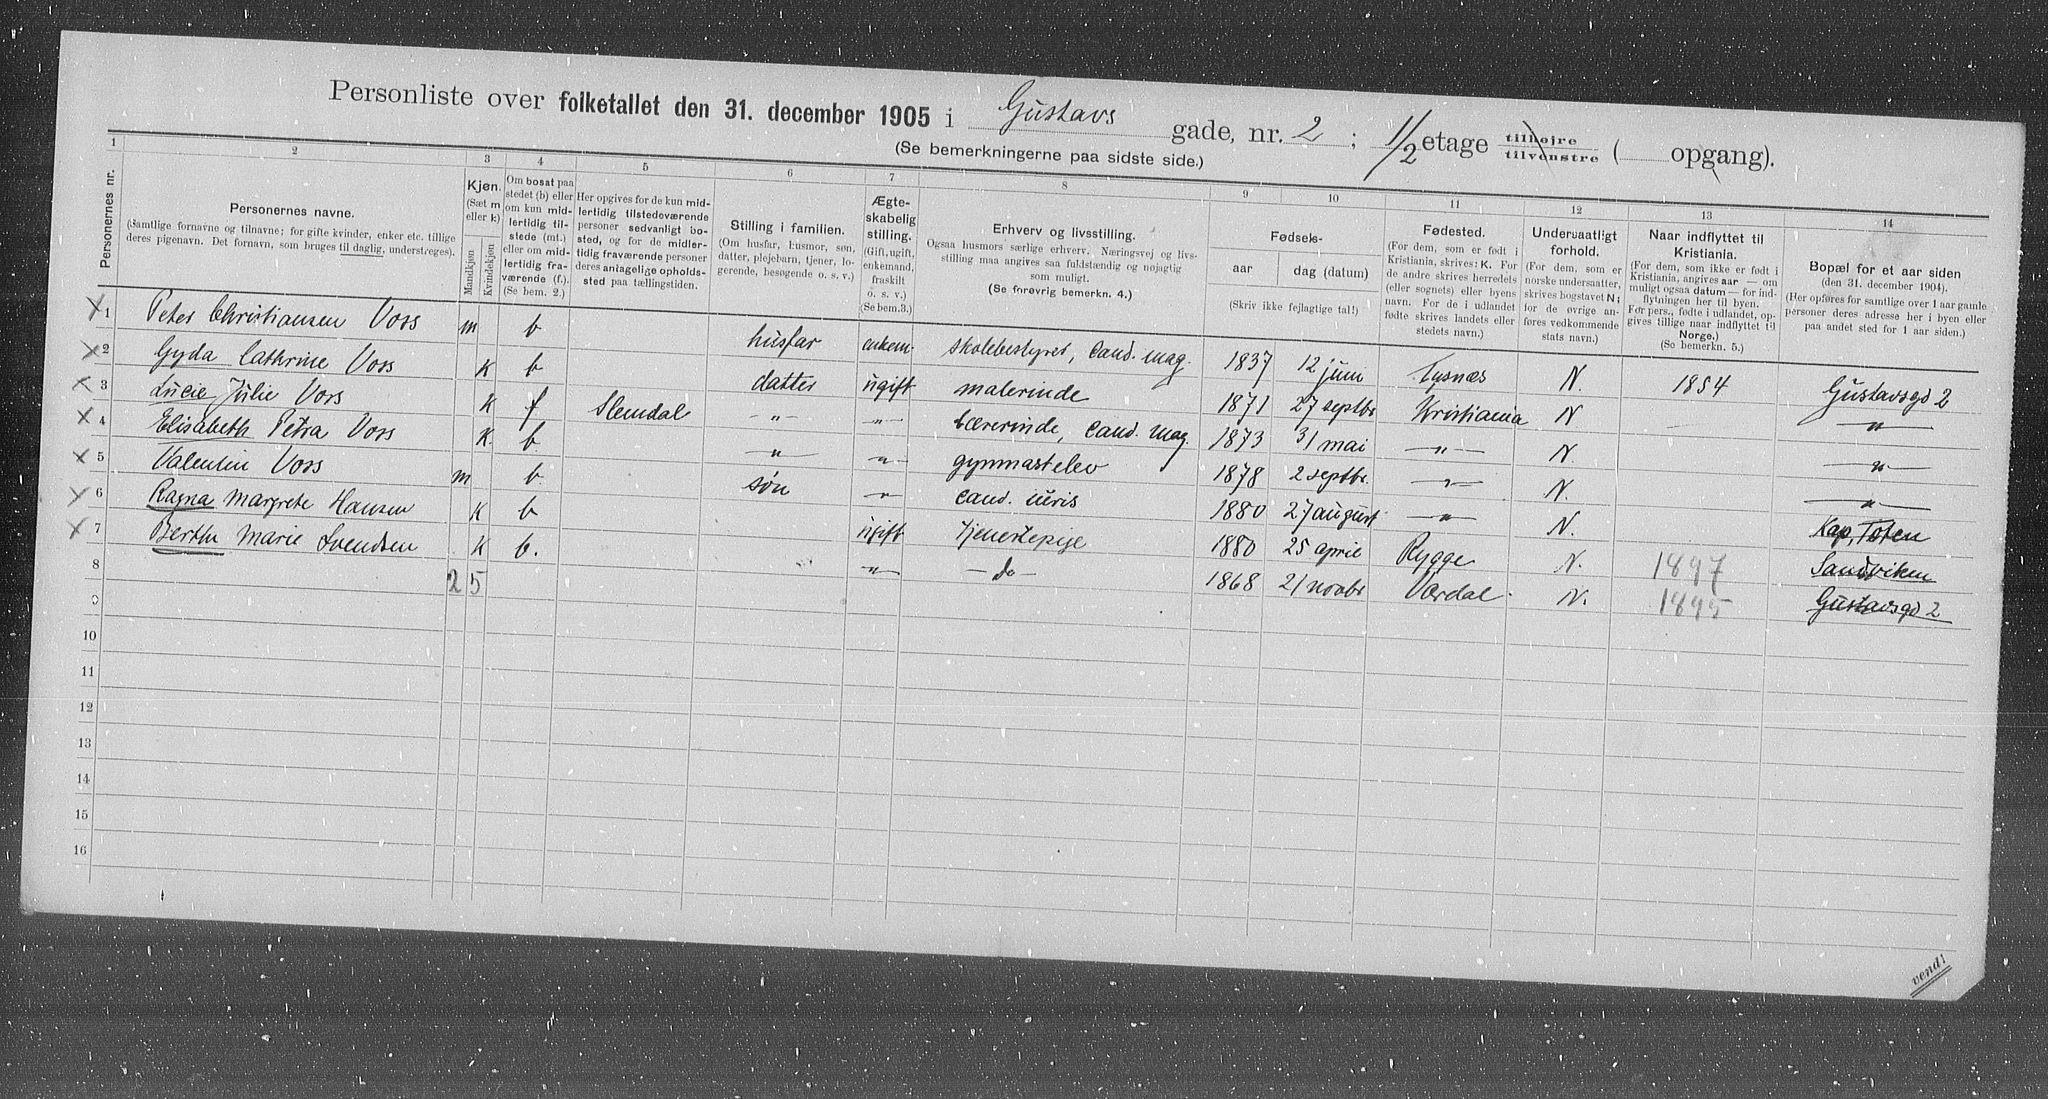 Personliste over folketallet den 31. december 1905 i Gustavs gade, nr. 2 ; 1/2 etage tilhøjre tilvenstre ( opgang).
(Se bemerkningerne paa sidste side.)
1 2 3 4 5 6 7 8 9 10 11 12 13 14
Personernes nr.
Personernes navne.
(Samtlige fornavne og tilnavne; for gifte kvinder, enker etc. tillige
deres pigenavn. Det fornavn, som bruges til daglig, understreges).
Kjøn.
(Sæt m
eller k)
Mandkjøn
Kvindekjøn
Om bosat paa
stedet (b) eller
om kun mid-
lertidig til-
stede (mt.)
eller om mid-
lertidig fra-
værende (f.).
(Se bem. 2.)
Her opgives for de kun mid-
lertidig tilstedeværende
personer sedvanligt bo-
sted, og for de midler-
tidig fraværende personer
deres antagelige opholds-
sted paa tællingstiden.
Stilling i familien.
(Om husfar, husmor, søn,
datter, plejebarn, tjener, lo-
gerende, besøgende o. s. v.)
Ægte-
skabelig
stilling.
(Gift, ugift,
enkemand,
fraskilt
o. s. v.)
(Se bem. 3.)
Erhverv og livsstilling.
Ogsaa husmors særlige erhverv. Næringsvej og livs-
stilling maa angives saa fuldstændig og nøjagtig
som muligt.
(Se forøvrig bemerkn. 4.)
Fødsels-
aar dag (datum)
(Skriv ikke fejlagtige tal!)
Fødested.
(For dem, som er født i
Kristiania, skrives: K. For
de andre skrives herredets
(eller sognets) eller byens
navn. For de i udlandet
fødte skrives landets eller
stedets navn.)
Undersaatligt
forhold.
(For dem, som er
norske undersaatter,
skrives bogstavet N;
for de øvrige an-
føres vedkommende
stats navn.)
Naar indflyttet til
Kristiania.
(For dem, som ikke er født i
Kristiania, angives aar — om
muligt ogsaa datum — for ind-
flytningen her til byen.
For pers., fødte i udlandet, op-
gives tillige naar indflyttet til
Norge.)
(Se bemerkn. 5.)
Bopæl for et aar siden
(den 31. december 1904).
(Her opføres for samtlige over 1 aar gamle
personer deres adresse her i byen eller
paa andet sted for 1 aar siden.)
1 Peter Christiansen Voss m b husfar enkem. skolebestyrer, cand. mag. 1837 12 juni Tysnæs N. 1854 Gustavsgd 2
2 Gyda Cathrine Voss K b datter ugift malerinde 1871 27 septbr Kristiania N — — " —
3 Lucie Julie Voss K f Slemdal — " — — " — Lærerinde, cand. mag. 1873 31 mai — " — N. — " —
4 Elisabeth Petra Voss K. b — " — — " — gymnastelev 1878 2 septbr. — " — N. — " —
5 Valentin Voss m b søn " cand. iuris 1880 27 august — " — N.
6 Ragna Margrete Hansen K b ugift tjenestepige 1880 25 april Rygge N. 1897 Kap, Toten
7 Berthe Marie Svendsen K b. — " — — do — 1868 21 novbr Værdal N. 1895 Sandviken
8 2 5 Gustavsgd 2
9
10
11
12
13
14
15
16
vend!